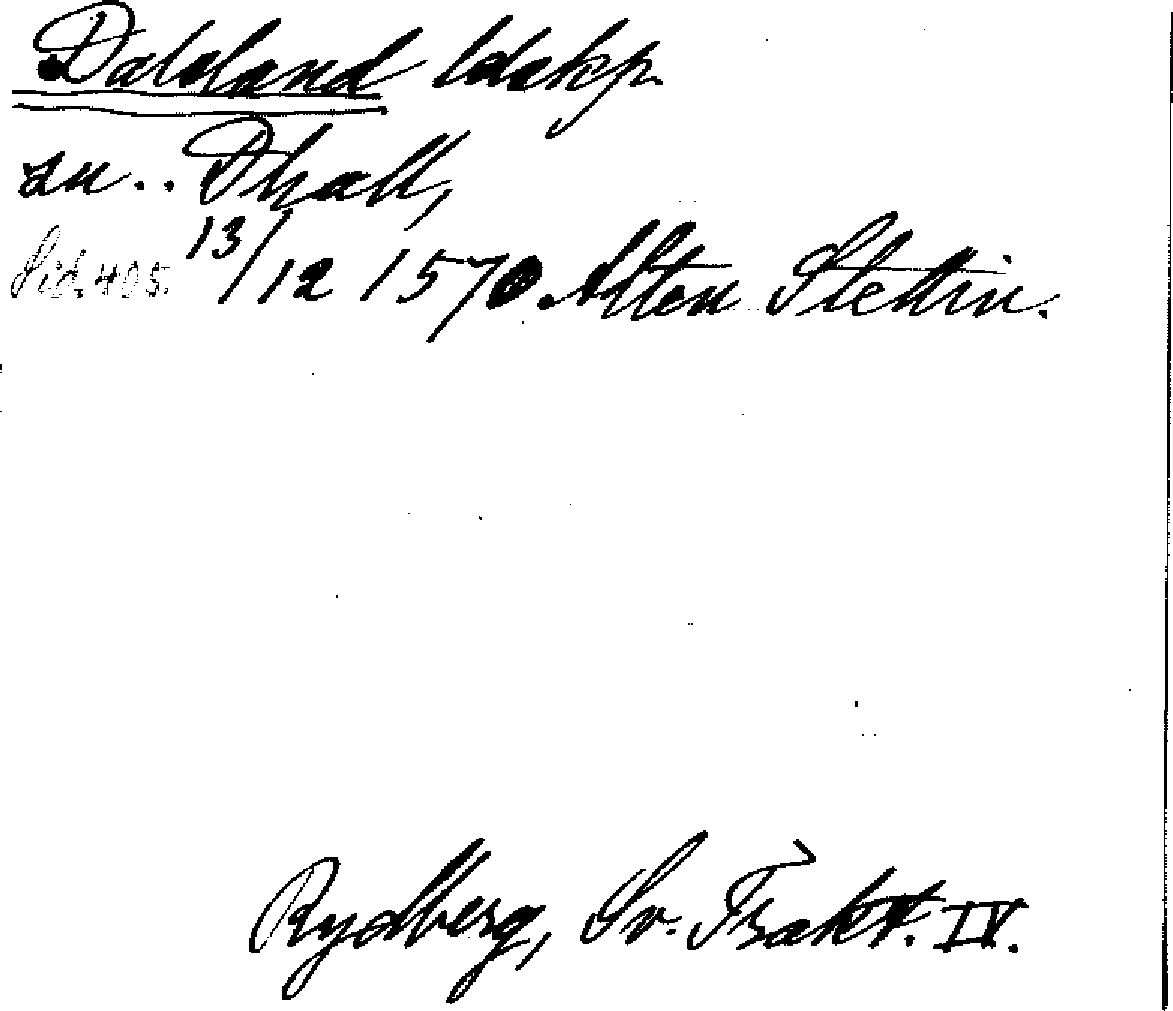 Dalsland ldskp.
zu.. Dhall,
Sid. 405. 13/12 1570. Alten Stettin.
Rydberg, Sv. Trakt. IV.